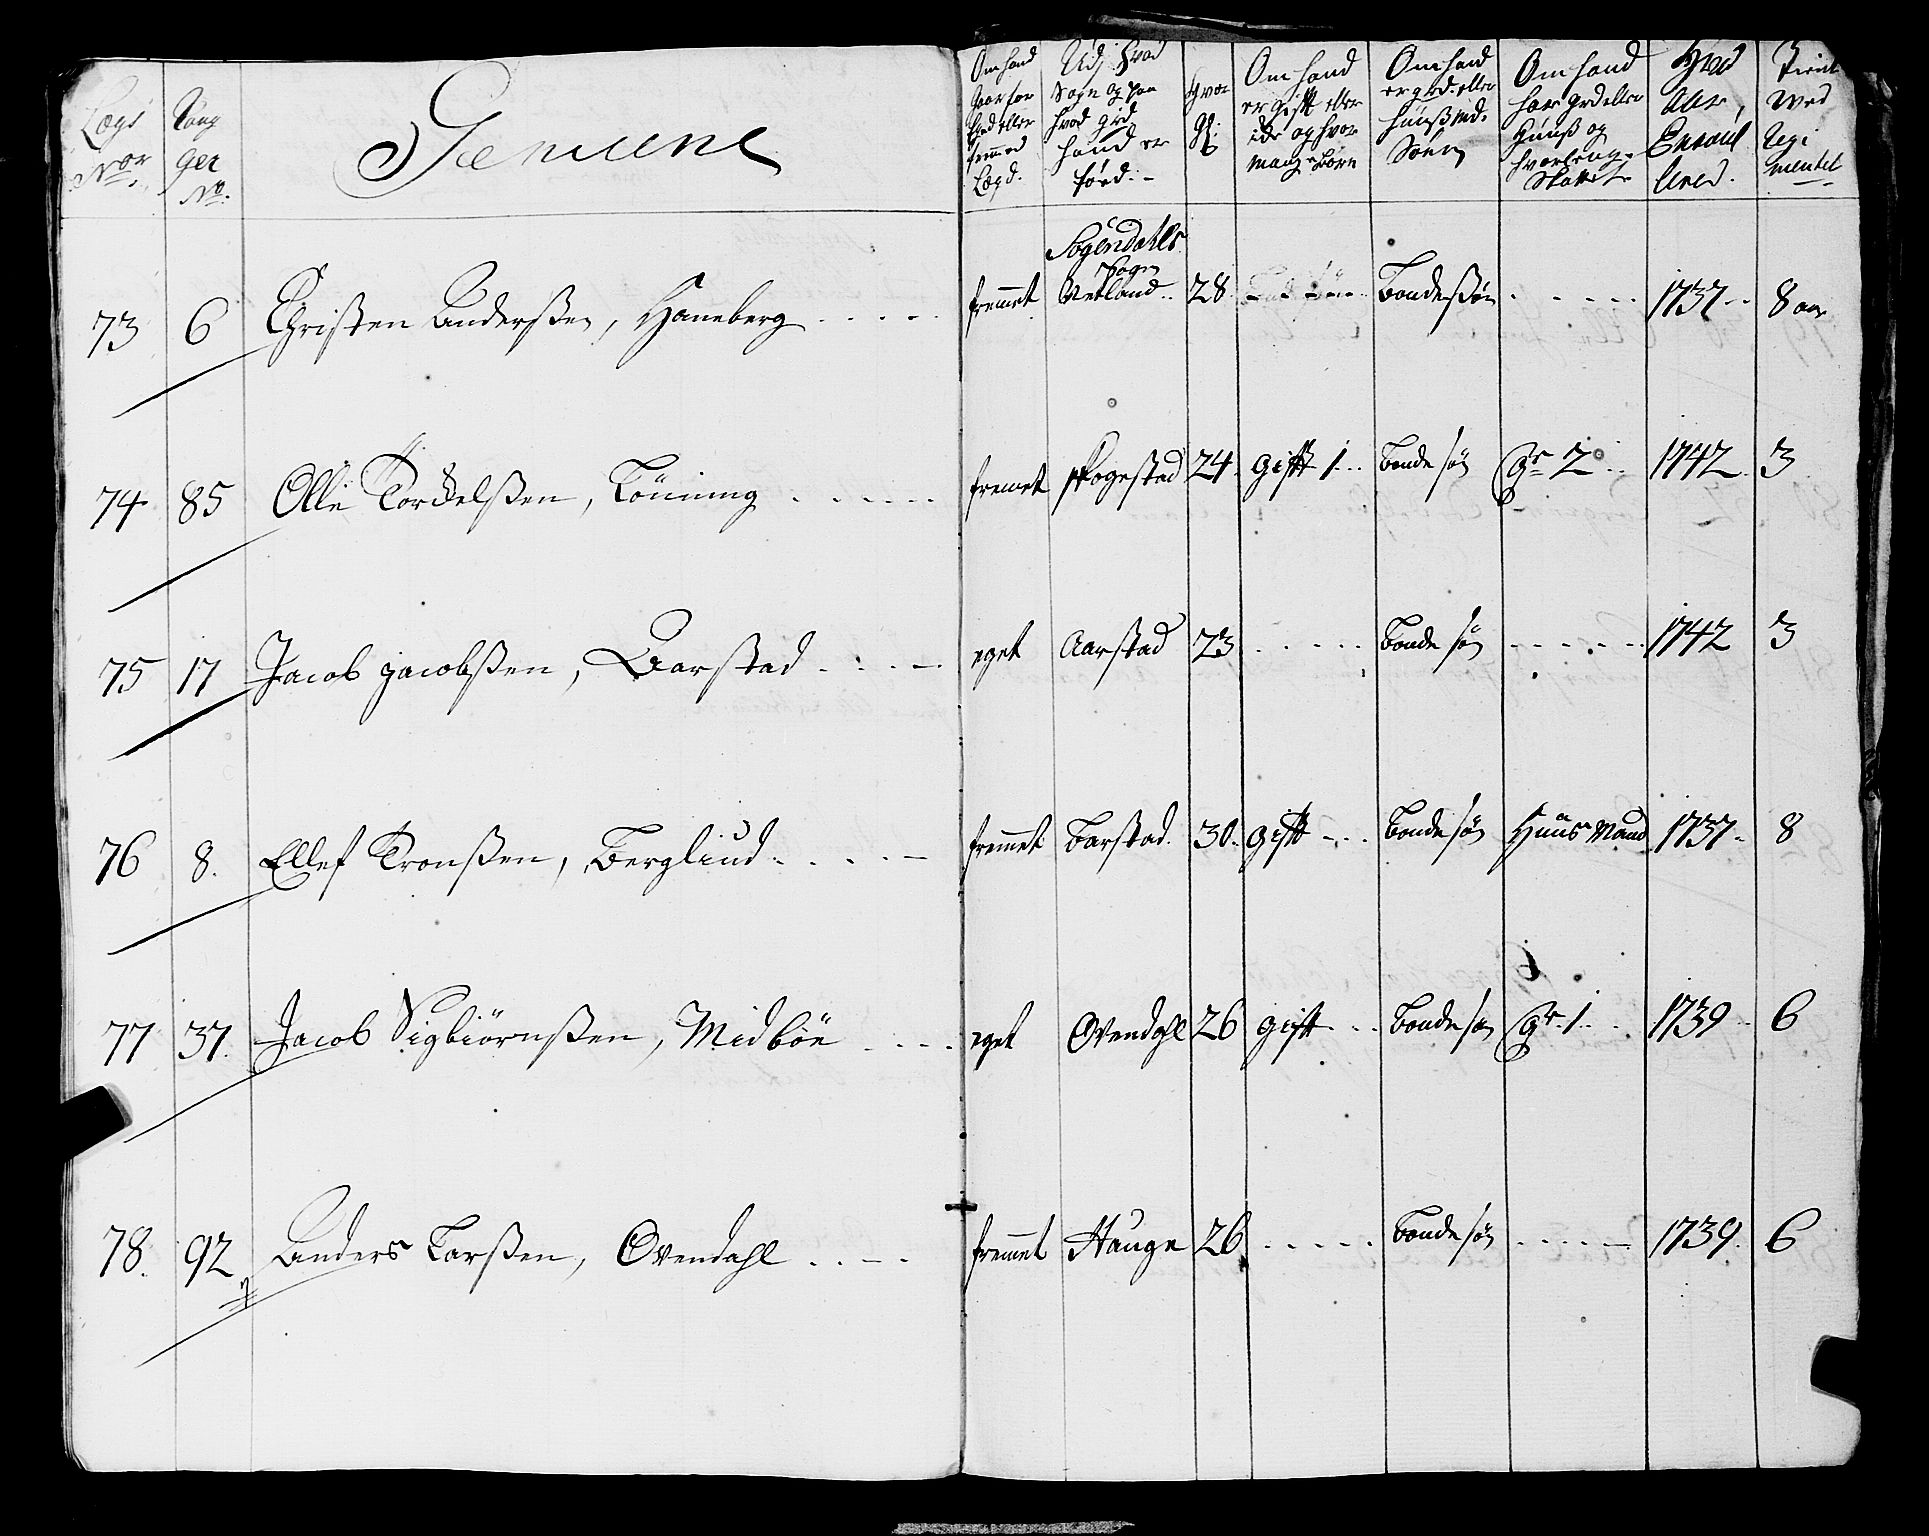 Lægs Nor.
Rang ger No.
Gemeene
Om hand staar for Eged eller fremed Lægd.
Udj hvad Sogn og paa hvad grd hand er föed.
hvor gl:
Om hand er gift eller ide og hvor mange Börn
Om hand er grd. eller huußmds. Sönn
Om hand har grd eller Huuß og hvor leng. Skatter
Hvad Aar, Enroullered.
Tient wed Regimentet
73 6 Christen Anderßen, Haneberg fremmet Sogendahls Sogn Vetland 28 Bondeßön 1737 8 aar
74 85 Olle Torckelßen, Töninng fremet Skogestad 24 gifft 1 Bonde sön gr 2 1742 3
75 17 Jacob jacobßen, Aarstad eget Aarstad 23 Bonde sön 1742 3
76 8. Ellef Tronßen, Bergliud fremmet Barstad. 30. gifft Bonde sön Huus Mand 1737 8
77 37. Jacob Sigbiörnßen, Midböe eget Ovendahl 26 gifft Bonde sön gr. 1. 1739 6
78. 92 Anders Larßen, Ovendahl fremmet Hauge 26 Bonde sön 1739. 6